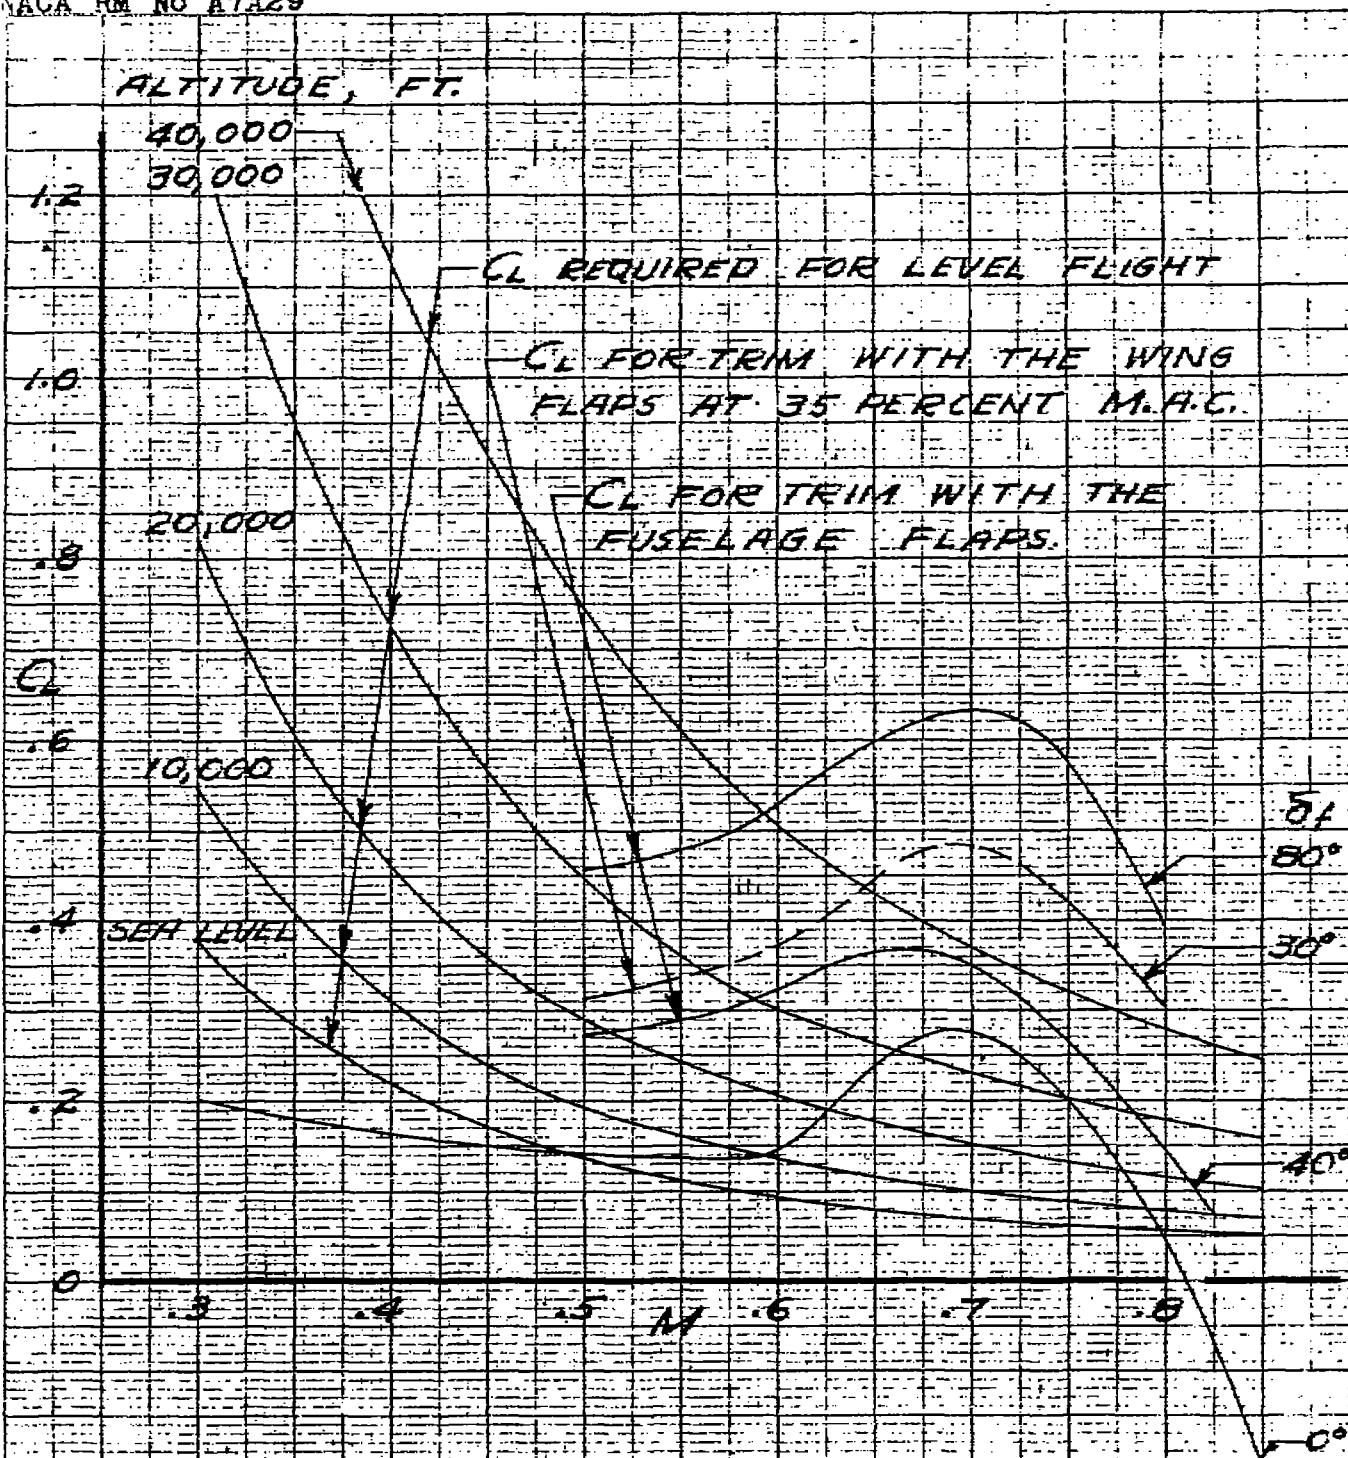 NACA RM No A7A29
ALTITUDE, FT.
40,000
30,000
1.2
CL REQUIRED FOR LEVEL FLIGHT
CL FOR TRIM WITH THE WING
1.0
FLAPS AT 35 PERCENT M.A.C.
CL FOR TRIM WITH THE
20,000
FUSELAGE FLAPS.
.8
CL
.6
10,000
δf
80°
.4
SEA LEVEL
30°
.2
40°
0
.3 .4 .5 M .6 .7 .8
0°